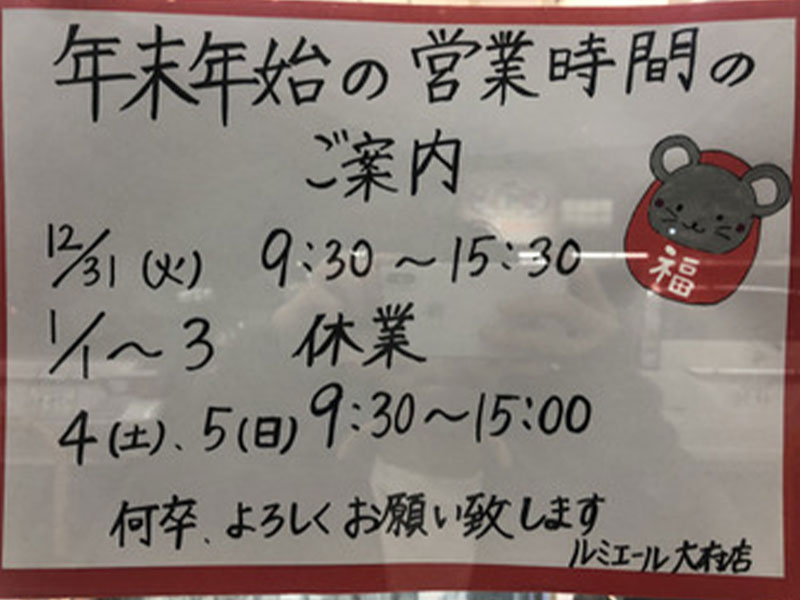 年末年始の営業時間の
ご案内
12/31(火) 9:30~15:30
1/1~3 休業
4(土)、5(日) 9:30~15:00
福
何卒、よろしくお願い致します
ルミエール大村店